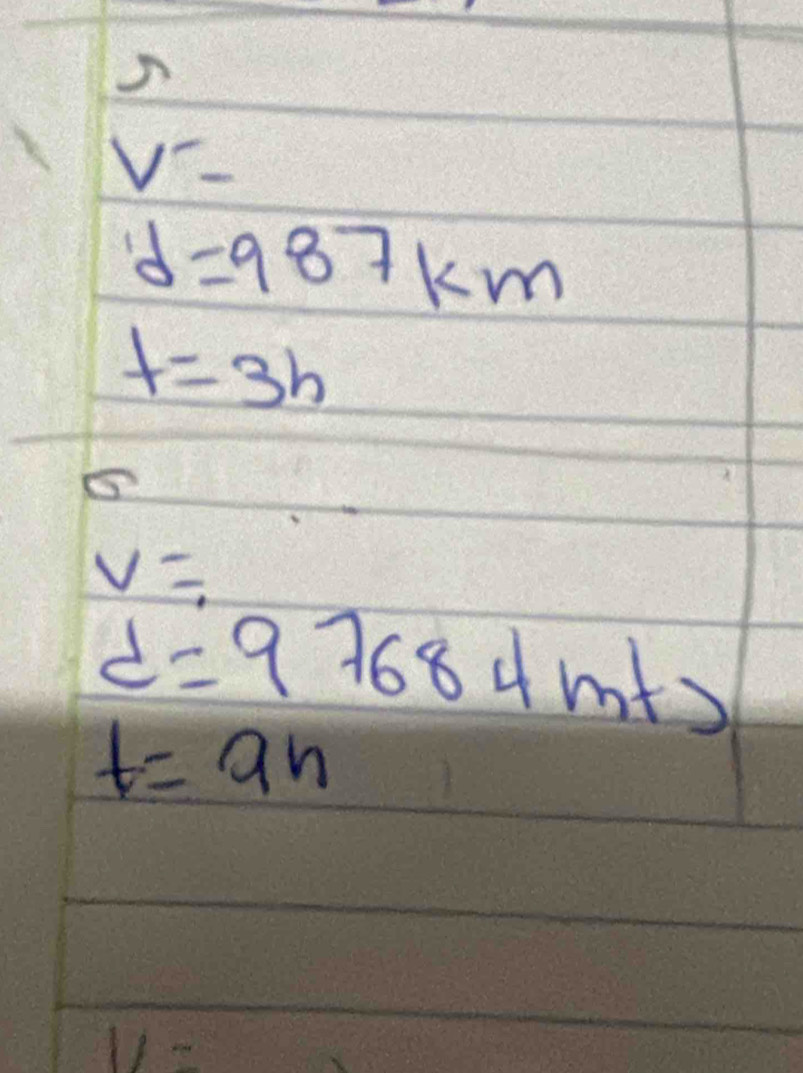 5
V=
d=987km
t=3h
6
V=
d=97684mts
t=9h
V=